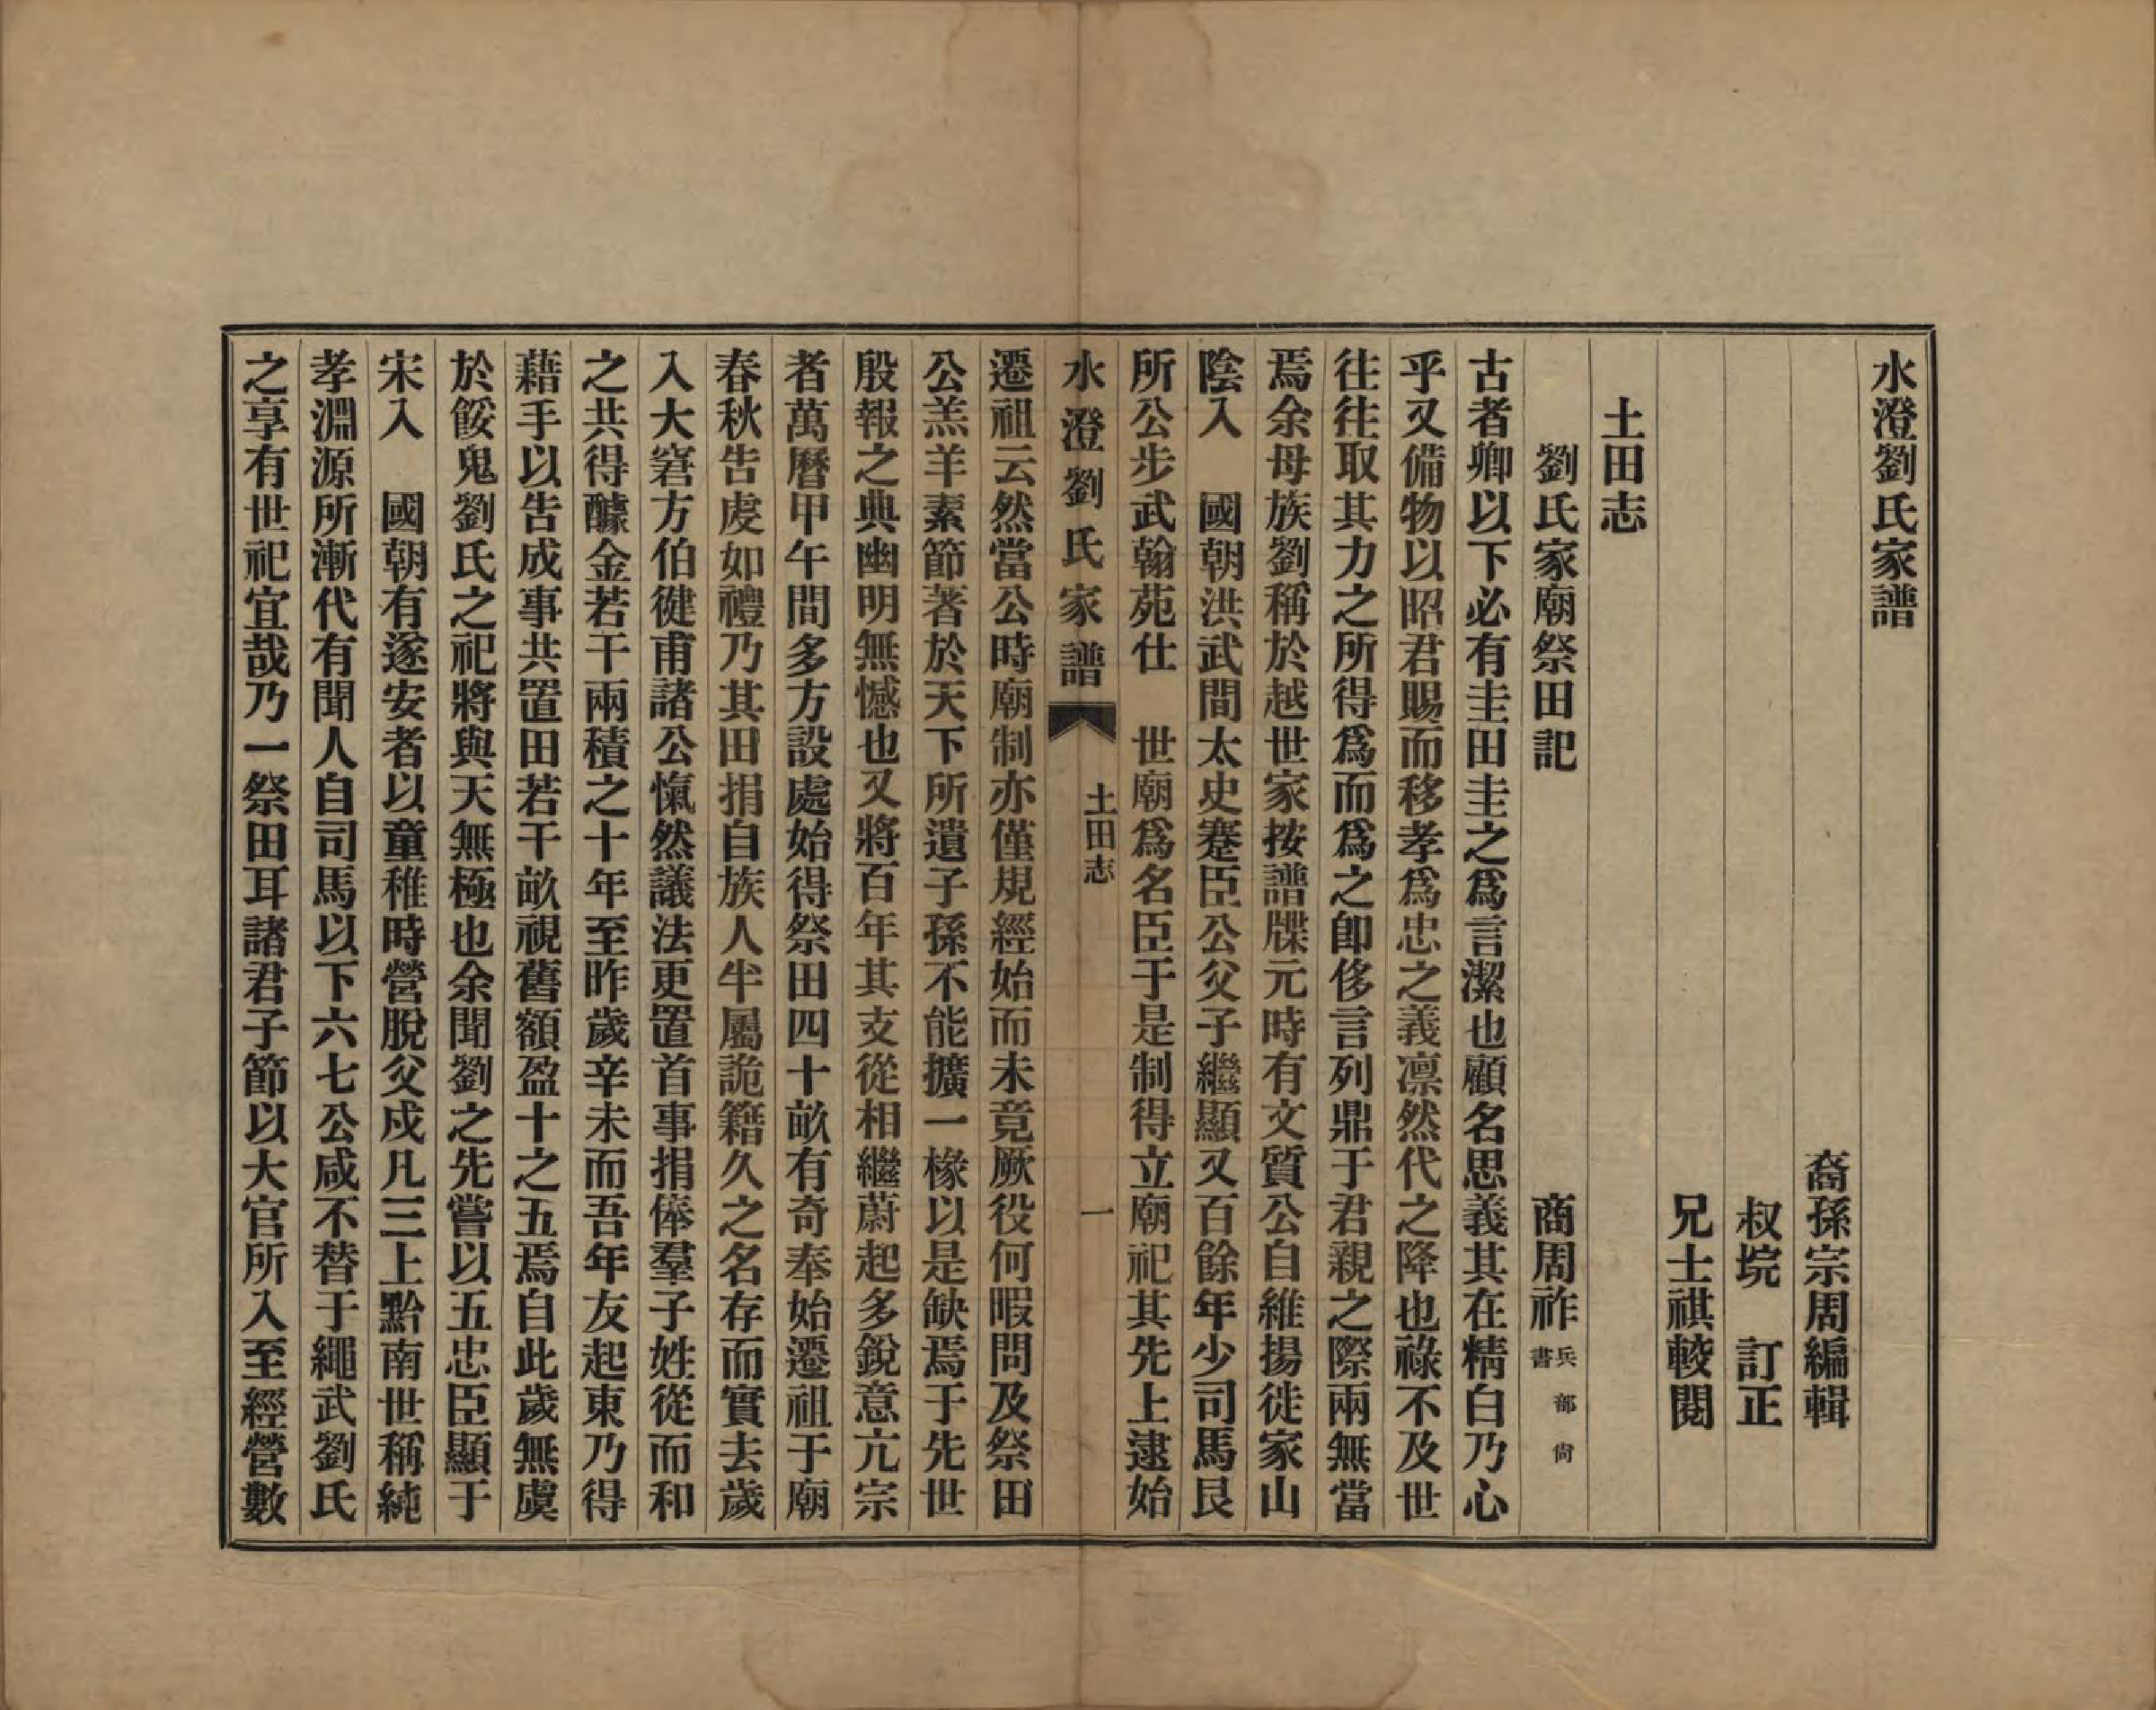 水澄劉氏家譜
裔孫宗周編輯
叔垸　訂正
兄士祺較閱
土田志
劉氏家廟祭田記　商周祚兵部尙書
古者卿以下必有圭田圭之爲言潔也顧名思義其在精白乃心
乎又備物以昭君賜而移孝爲忠之義凛然代之降也祿不及世
往往取其力之所得爲而爲之卽侈言列鼎于君親之際兩無當
焉余母族劉稱於越世家按譜牒元時有文質公自維揚徙家山
陰入　國朝洪武間太史蹇臣公父子繼顯又百餘年少司馬艮
所公步武翰苑仕　世廟爲名臣于是制得立廟祀其先上逮始
水澄劉氏家譜　土田志　一
遷祖云然當公時廟制亦僅規經始而未竟厥役何暇問及祭田
公羔羊素節著於天下所遺子孫不能擴一椽以是缺焉于先世
殷報之典幽明無憾也又將百年其支從相繼蔚起多銳意亢宗
者萬曆甲午間多方設處始得祭田四十畝有奇奉始遷祖于廟
春秋告虔如禮乃其田捐自族人半屬詭籍久之名存而實去歲
入大窘方伯健甫諸公愾然議法更置首事捐俸羣子姓從而和
之共得醵金若干兩積之十年至昨歲辛未而吾年友起東乃得
藉手以告成事共置田若干畝視舊額盈十之五焉自此歲無虞
於餒鬼劉氏之祀將與天無極也余聞劉之先嘗以五忠臣顯于
宋入　國朝有遂安者以童稚時營脫父戍凡三上黔南世稱純
孝淵源所漸代有聞人自司馬以下六七公咸不替于繩武劉氏
之享有世祀宜哉乃一祭田耳諸君子節以大官所入至經營數